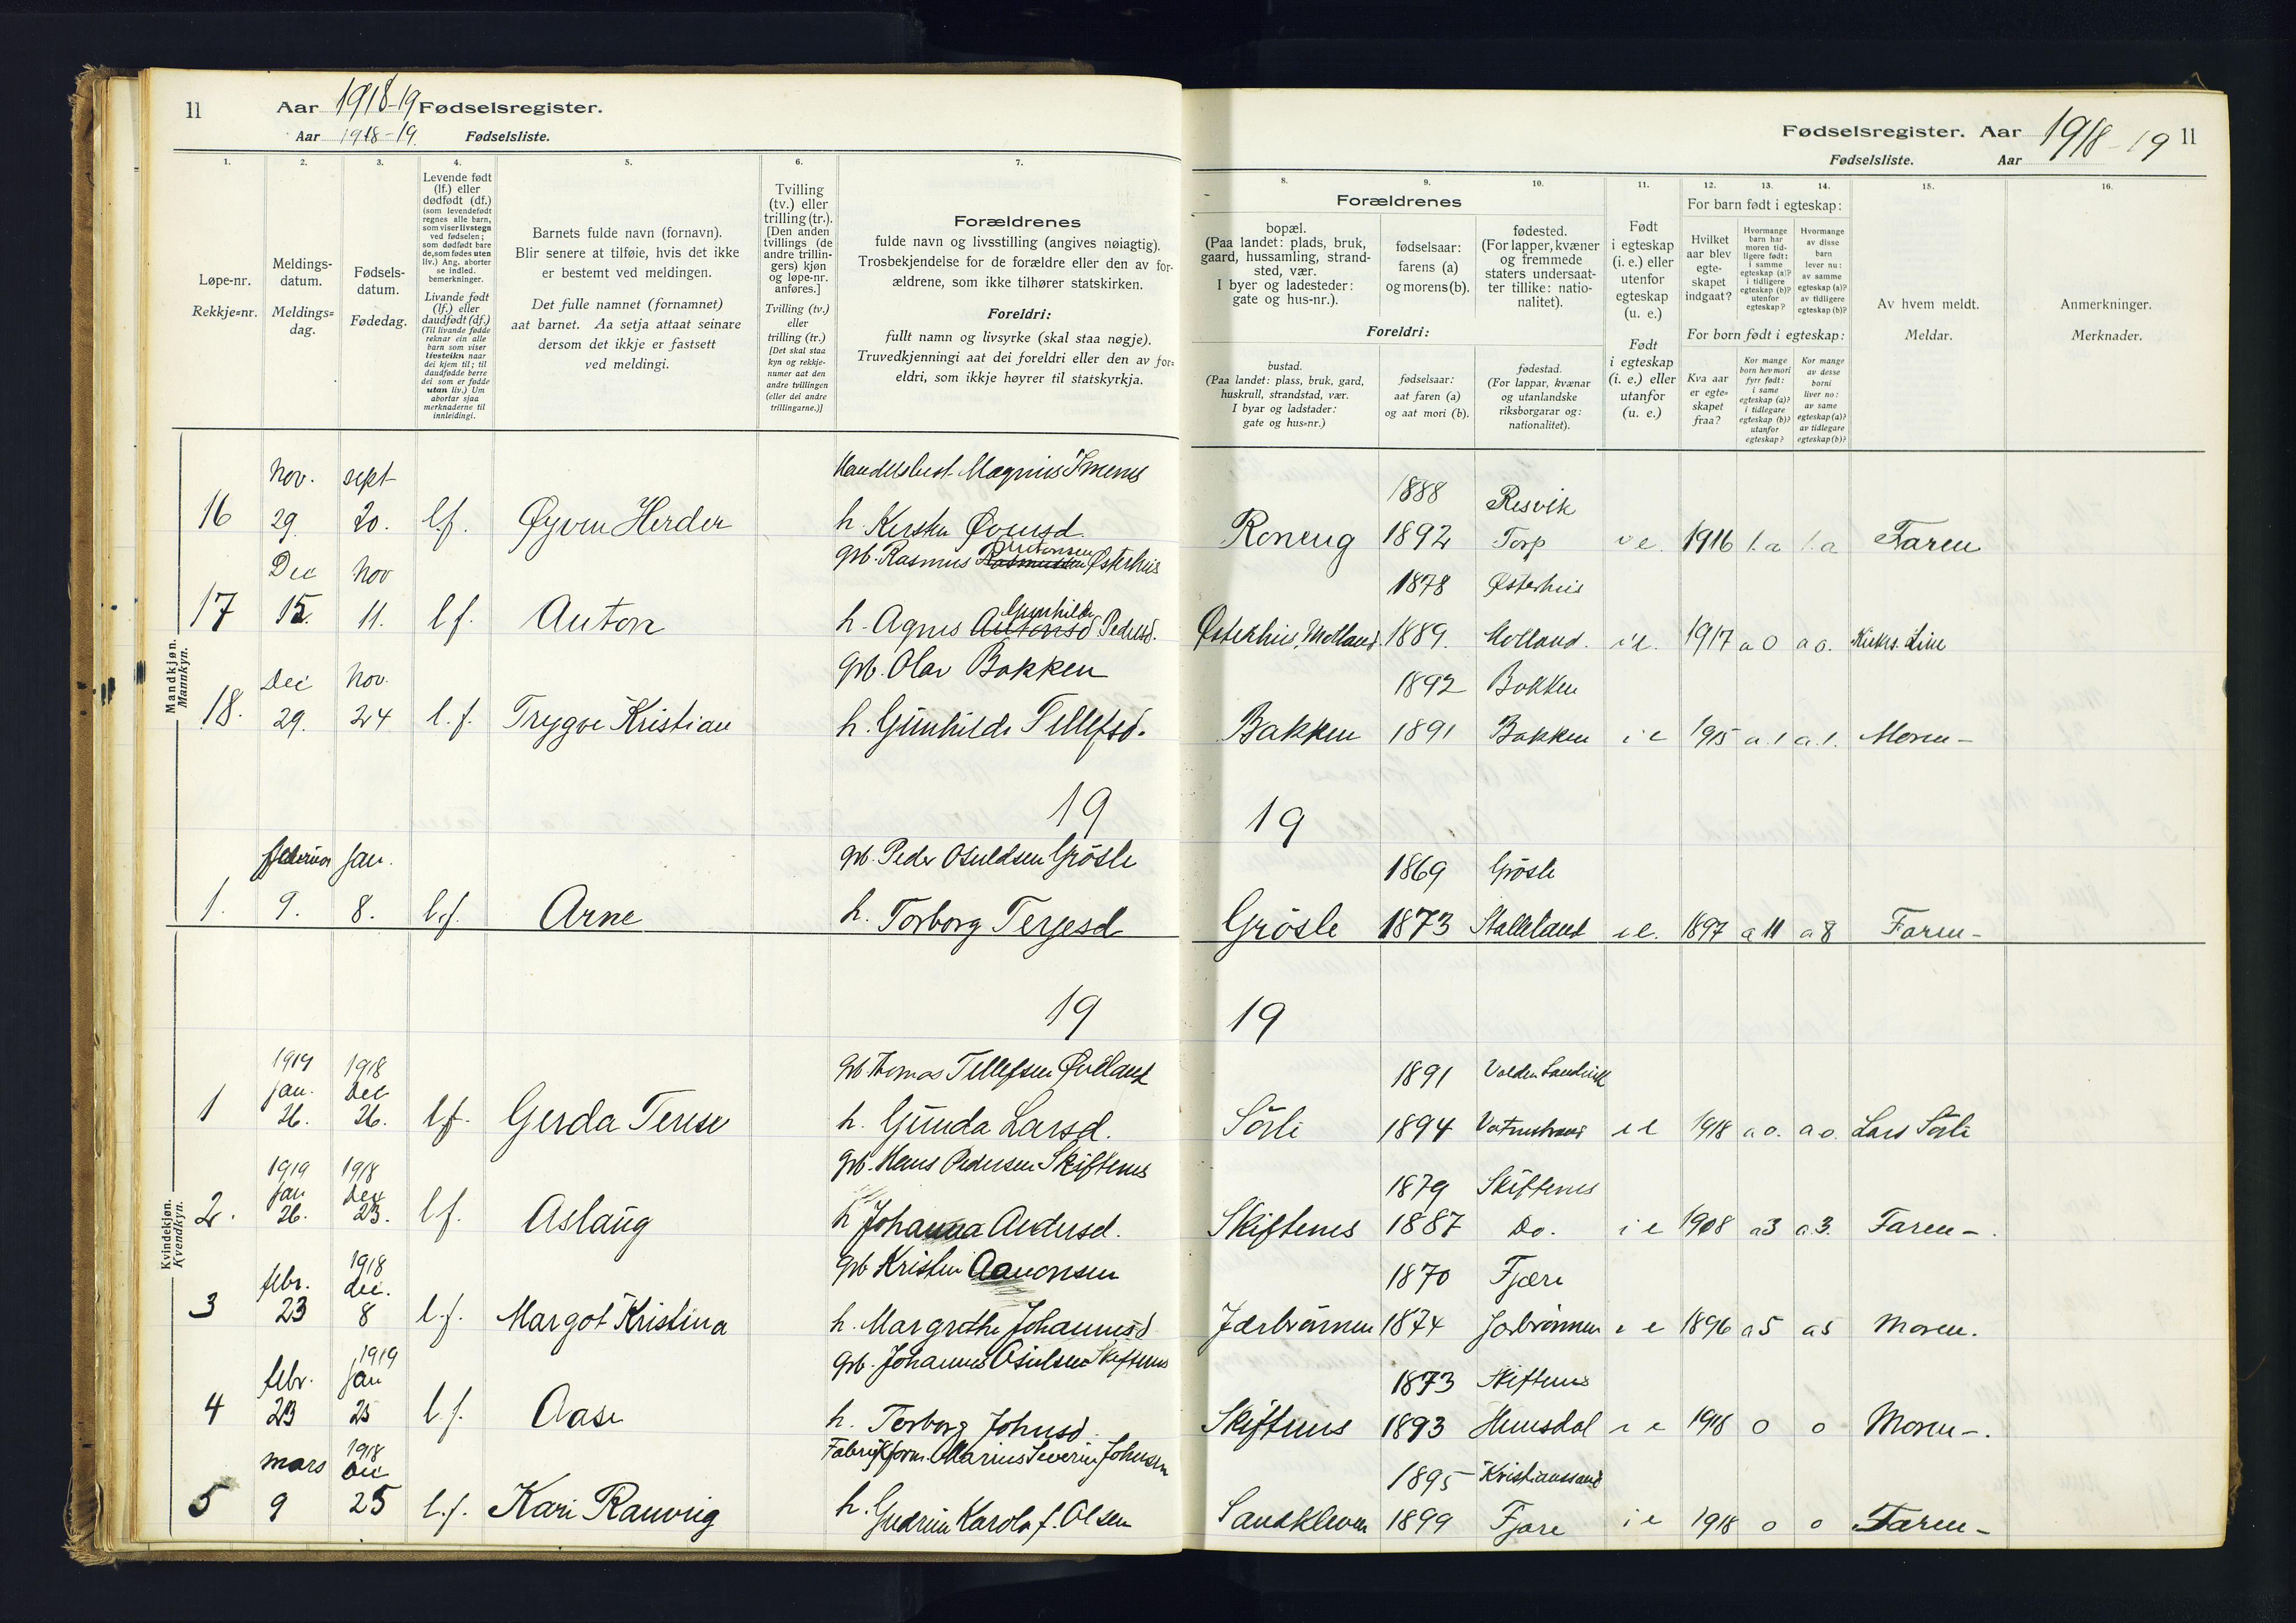 11 Aar 1918-19 Fødselsregister.
Aar 1918-19. Fødselsliste.
1. 2. 3. 4. 5. 6. 7.
Løpe-nr.
Rekkje=nr.
Meldings-
datum.
Meldings=
dag.
Fødsels-
datum.
Fødedag.
Levende født
(lf.) eller
dødfødt (df.)
(som levendefødt
regnes alle barn,
som viser livstegn
ved fødselen;
som dødfødt bare
de, som fødes uten
liv.) Ang. aborter
se indled.
bemerkninger.
Livande født
(lf.) eller
daudfødt (df.)
(Til livande fødde
reknar ein alle
barn som viser
livsteikn naar
dei kjem til; til
daudfødde berre
dei som er fødde
utan liv.) Um
abortar sjaa
merknaderne til
innleidingi.
Barnets fulde navn (fornavn).
Blir senere at tilføie, hvis det ikke
er bestemt ved meldingen.
Det fulle namnet (fornamnet)
aat barnet. Aa setja attaat seinare
dersom det ikkje er fastsett
ved meldingi.
Tvilling
(tv.) eller
trilling (tr.).
[Den anden
tvillings (de
andre trillin-
gers) kjøn
og løpe-nr.
anføres.]
Tvilling (tv.)
eller
trilling (tr.)
[Det skal staa
kyn og rekkje-
numer aat den
andre tvillingen
(eller dei andre
trillingarne.)]
Forældrenes
fulde navn og livsstilling (angives nøiagtig).
Trosbekjendelse for de forældre eller den av for-
ældrene, som ikke tilhører statskirken.
Foreldri:
fullt namn og livsyrke (skal staa nøgje).
Truvedkjenningi aat dei foreldri eller den av for=
eldri, som ikkje høyrer til statskyrkja.
Mandkjøn.
Mannkyn.
Nov. sept Handelsbest. Magnus Imenes
16 29. 20. l.f. Øyvin Herder h. Kirsten Øvensd.
Dec Nov gb. Rasmus Rasmussen Antonsen Østerhus
17 15. 11. l f. Anton h. Agnes Antonsd Gunhilda Pedersd.
Dec Nov. gb. Olav Bakken
18. 29. 24 l.f. Trygve Kristian h. Gunhilde Tellefsd.
19
Februar Jan. gb. Peder Osuldsen Grösle
1. 9. 8. l.f. Arne h. Torborg Terjesd
Kvindekjøn.
Kvendkyn.
19
1919 1918 gb Tomas Tellefsen Øveland
Jan. Dec
1 26. 26. l.f. Gerda Terese h. Gunda Larsd.
1919 1918 gb. Hans Pedersen Skiftenes
Jan Dec
2. 26. 23. l f. Aslaug h Johanna Andersd.
1918 gb Kristen Aanonsen
febr. Dec.
3 23 8 l.f. Margot Kristina h. Margrethe Johannesd
1919 gb. Johannes Osulsen Skiftenes
febr. Jan
4 23 25 l.f. Aase h. Torborg Johnsd.
1918 Fabrikform. Marius Severin Johnsen
mars Dec
5 9 25 l.f. Kari Rauvig h. Gudrun Karola f. Olsen
Fødselsregister. Aar 1918-19 11
Fødselsliste. Aar
8. 9. 10. 11. 12. 13. 14. 15. 16.
Forældrenes
bopæl.
(Paa landet: plads, bruk,
gaard, hussamling, strand-
sted, vær.
I byer og ladesteder:
gate og hus-nr.).
fødselsaar:
farens (a)
og morens (b).
fødested.
(For lapper, kvæner
og fremmede
staters undersaat-
ter tillike: natio-
nalitet).
Foreldri:
bustad.
(Paa landet: plass, bruk, gard,
huskrull, strandstad, vær.
I byar og ladstader:
gate og hus=nr.)
fødselsaar:
aat faren (a)
og aat mori (b).
fødestad.
(For lappar, kvænar
og utanlandske
riksborgarar og:
nationalitet).
Født
i egteskap
(i. e.) eller
utenfor
egteskap
(u. e.)
Født
i egteskap
(i. e.) eller
utanfor
(u. e.)
For barn født i egteskap:
Hvilket
aar blev
egte-
skapet
indgaat?
Hvormange
barn har
moren tid-
ligere født:
i samme
egteskap (a)?
i tidligere
egteskap (b)?
utenfor
egteskap?
Hvormange
av disse
barn
lever nu:
av samme
egteskap (a)?
av tidligere
egteskap (b)?
For born født i egteskap:
Kva aar
er egte=
skapet
fraa?
Kor mange
born hev mori
fyrr født:
i same
egteskap (a)?
i tidlegare
egteskap (b)?
utanfor
egteskap?
Kor mange
av desse
borni
liver no:
av same
egteskap (a)?
av tidlegare
egteskap (b)?
Av hvem meldt.
Meldar.
Anmerkninger.
Merknader.
1888 Resvik
1892 Torp i e. 1916 1.a 1.a Faren
1878 Østerhus
Østerhus, Molland. 1889. Molland. i e. 1917 a 0 a o.
1892 Bakken
Bakken 1891 Bakken i e 1915 a.1 a.1. Moren-
19
1869 Grösle
Grösle 1873 Stalleland i e. 1897 a 11 a 8 Faren-
19
1891
Sörli 1894 i e 1918 a o. a o. Lars Sörli
1879 Skiftenes
Skiftenes 1887 Do. i e 1908 a3 a.3. Faren-.
1870 Fjære
Jærbrönnen 1874 Jærbrönnen i e 1896 a5 a5 Moren.
1873 Skiftenes
Skiftenes 1893 Hunsdal i e 1918 o o Moren-.
1895 Kristianssand
Sandkleven 1899 Fjære i e 1918 o o Faren-